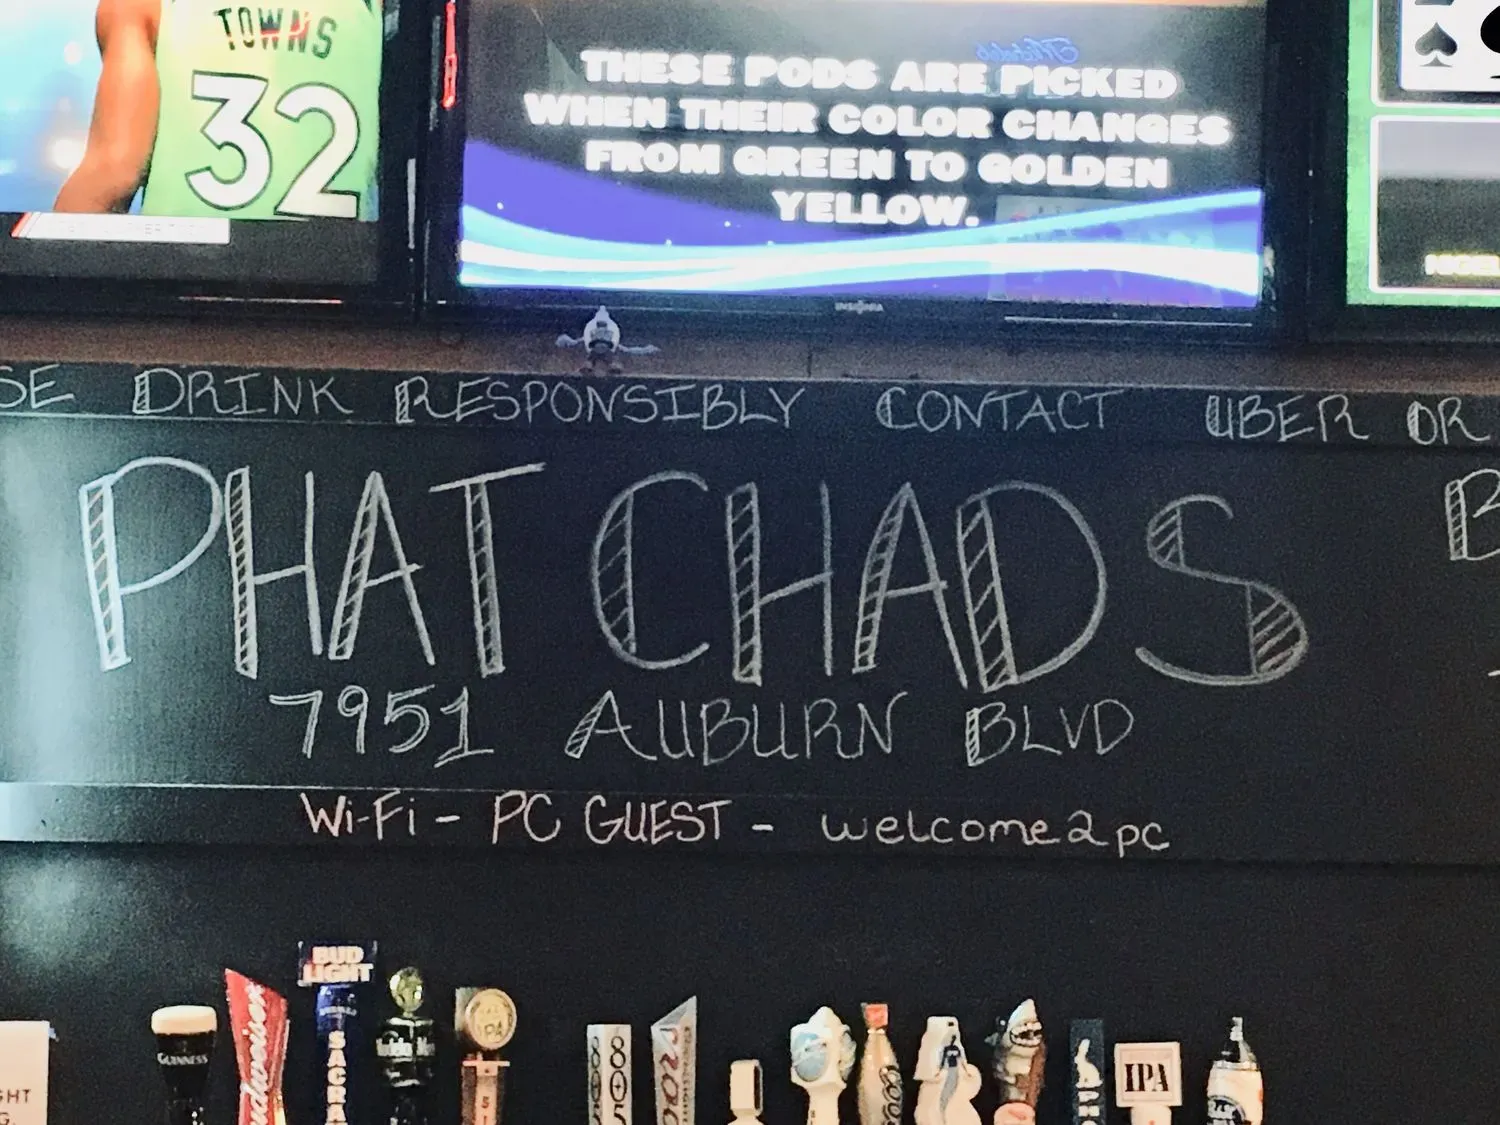 TOWNS
32
THESE PODS ARE PICKED
WHEN THEIR COLOR CHANGES
FROM GREEN TO GOLDEN
YELLOW.
INSIGNIA
SE DRINK RESPONSIBLY CONTACT UBER OR
PHAT CHADS
7951 AUBURN BLVD
Wi-Fi - PC GUEST - welcome2pc
GUINNESS
Budweiser
BUD
LIGHT
SACRA
IPA
805
805
Coors
LIGHT
IPA
GHT
G.